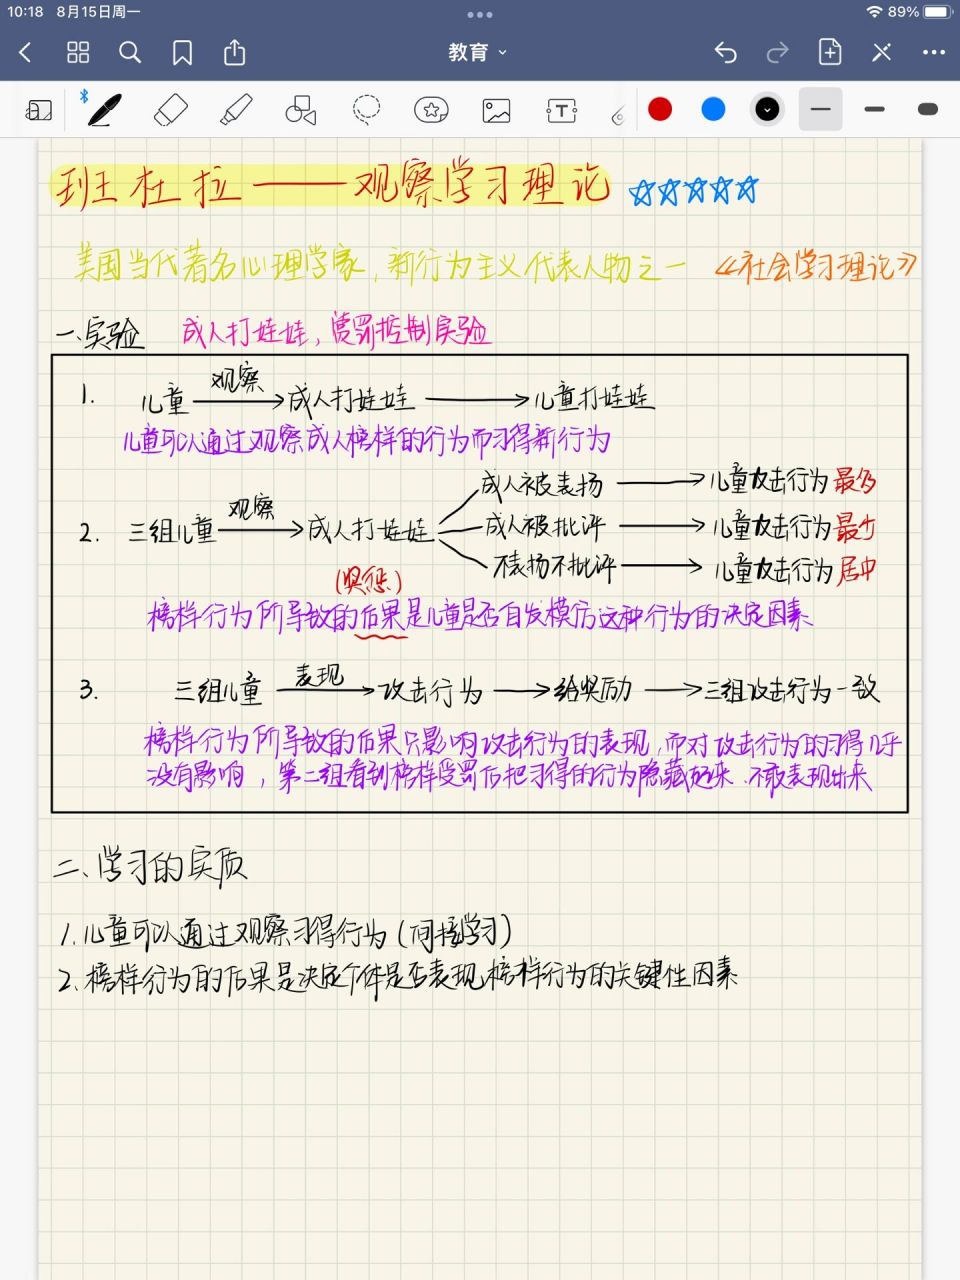 10:18 8月15日周一
89%
教育
班杜拉——观察学习理论 ☆☆☆☆☆
美国当代著名心理学家,新行为主义代表人物之一 《社会学习理论》
一、实验 成人打娃娃,赏罚控制实验
1. 儿童 观察→ 成人打娃娃 → 儿童打娃娃
儿童可以通过观察成人榜样的行为而习得新行为
成人被表扬 → 儿童攻击行为最多
2. 三组儿童 观察→ 成人打娃娃 成人被批评 → 儿童攻击行为最少
不表扬不批评 → 儿童攻击行为居中
(奖惩)
榜样行为所导致的后果是儿童是否自发模仿这种行为的决定因素
3. 三组儿童 表现→ 攻击行为 → 给奖励 → 三组攻击行为一致
榜样行为所导致的后果只影响攻击行为的表现,而对攻击行为的习得几乎
没有影响,第二组看到榜样受罚后把习得的行为隐藏起来.不敢表现出来
二、学习的实质
1.儿童可以通过观察习得行为(间接学习)
2.榜样行为的后果是决定个体是否表现榜样行为的关键性因素